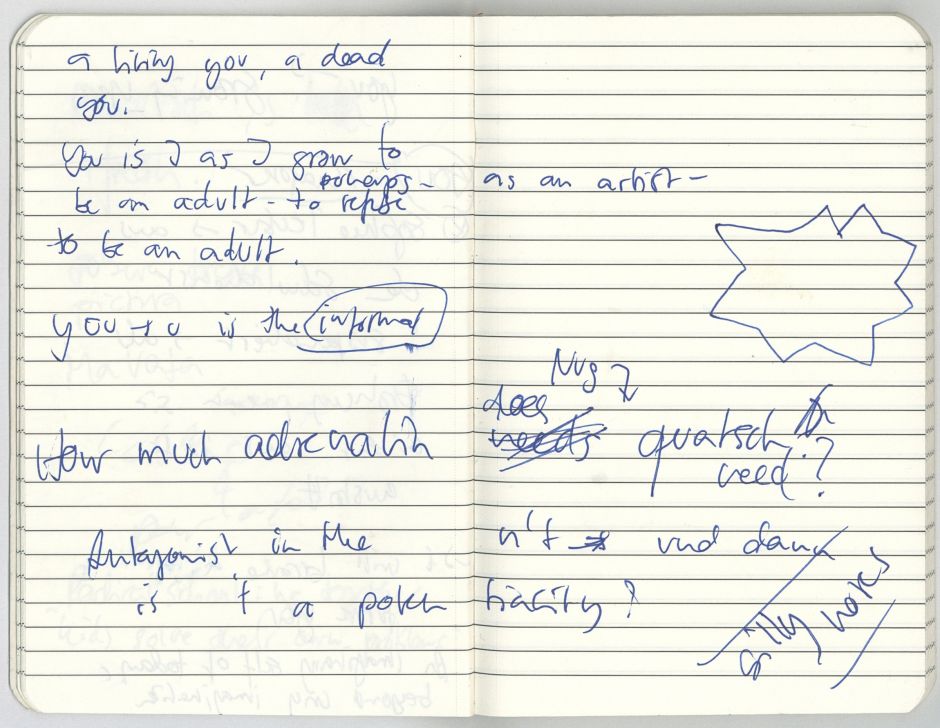 a living you, a dead
you.
You is I as I grow to
perhaps -
be an adult - to refuse as an artist -
to be an adult.
you → u is the informal
Nug
does
How much adrenalin needs quatsch
need?
Antagonist in the n't und dann
is 't a poten tiality?
silly notes